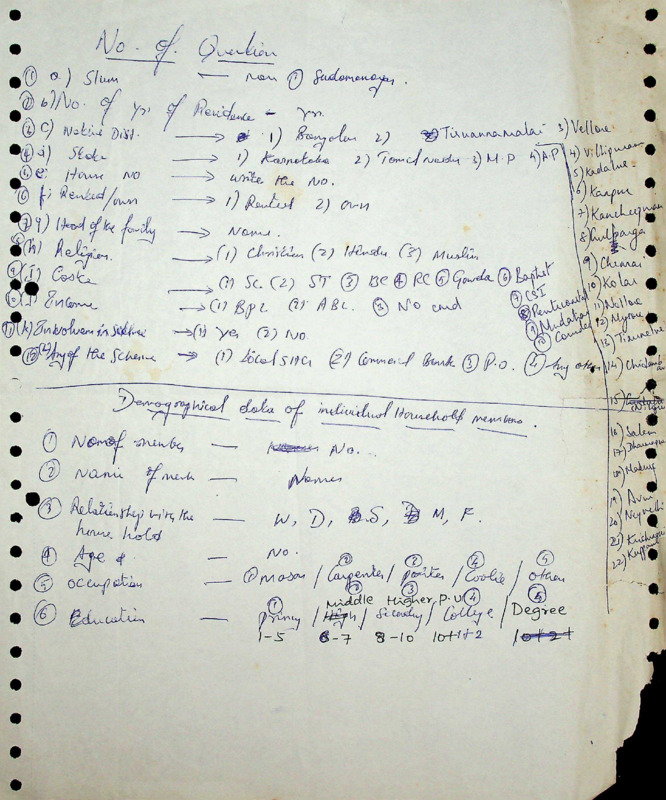 No. of. Question
① a) Slum ← non ①
② b) No. of yrs of Residence - yrs.
③ c) Native Dist. → 1) Bangalore 2) Tiruvannamalai 3) Vellore
④ d) State → 1) Karnataka 2) Tamil nadu 3) M.P 4) A.P
⑤ e) House No → write the No.
⑥ f) Rented/own → 1) Rented 2) own
⑦ g) Head of the family → Name.
⑧ (h) Religion. → (1) Christian (2) Hindu (3) Muslim
⑨ (i) Caste → (1) Sc. (2) ST ③ BC ④ RC ⑤ Gowda ⑥ Baptist
⑦ CSI
⑧ Pentecostal
⑨ Mudaliar
⑩
⑩ (j) Income → (1) BPL (2) ABL. ③ No card
11) (k) → (1) Yes (2) No.
⑫ (l) Any of the Scheme → (1) Local SHGs (2) Commercial Bank ③ P.O. ④ Any other
4) Villupuram
5) Kadalur
6) Kanpur
7) Kancheepuram
8) Gulbarga
9) Chennai
10) Kolar
11) Nellore
12) Mysore
13)
14)
15)
16) Salem
17) Dharmapuri
18)
19)
20)
21)
22)
Demographical data of individual Household members.
① No of member — No..
② Name of mem — Names
③ Relationship with the — W, D, S, M, F.
house hold
④ Age — No.
⑤ occupation — ① Mason / ② Carpenter / ③ painter / ④ Coolie / ⑤ others
① ② Middle ③ Higher P.U ④ ⑤
⑥ Education — Primary / High / Secondary / College / Degree
1-5 6-7 8-10 10+1+2 10+2+